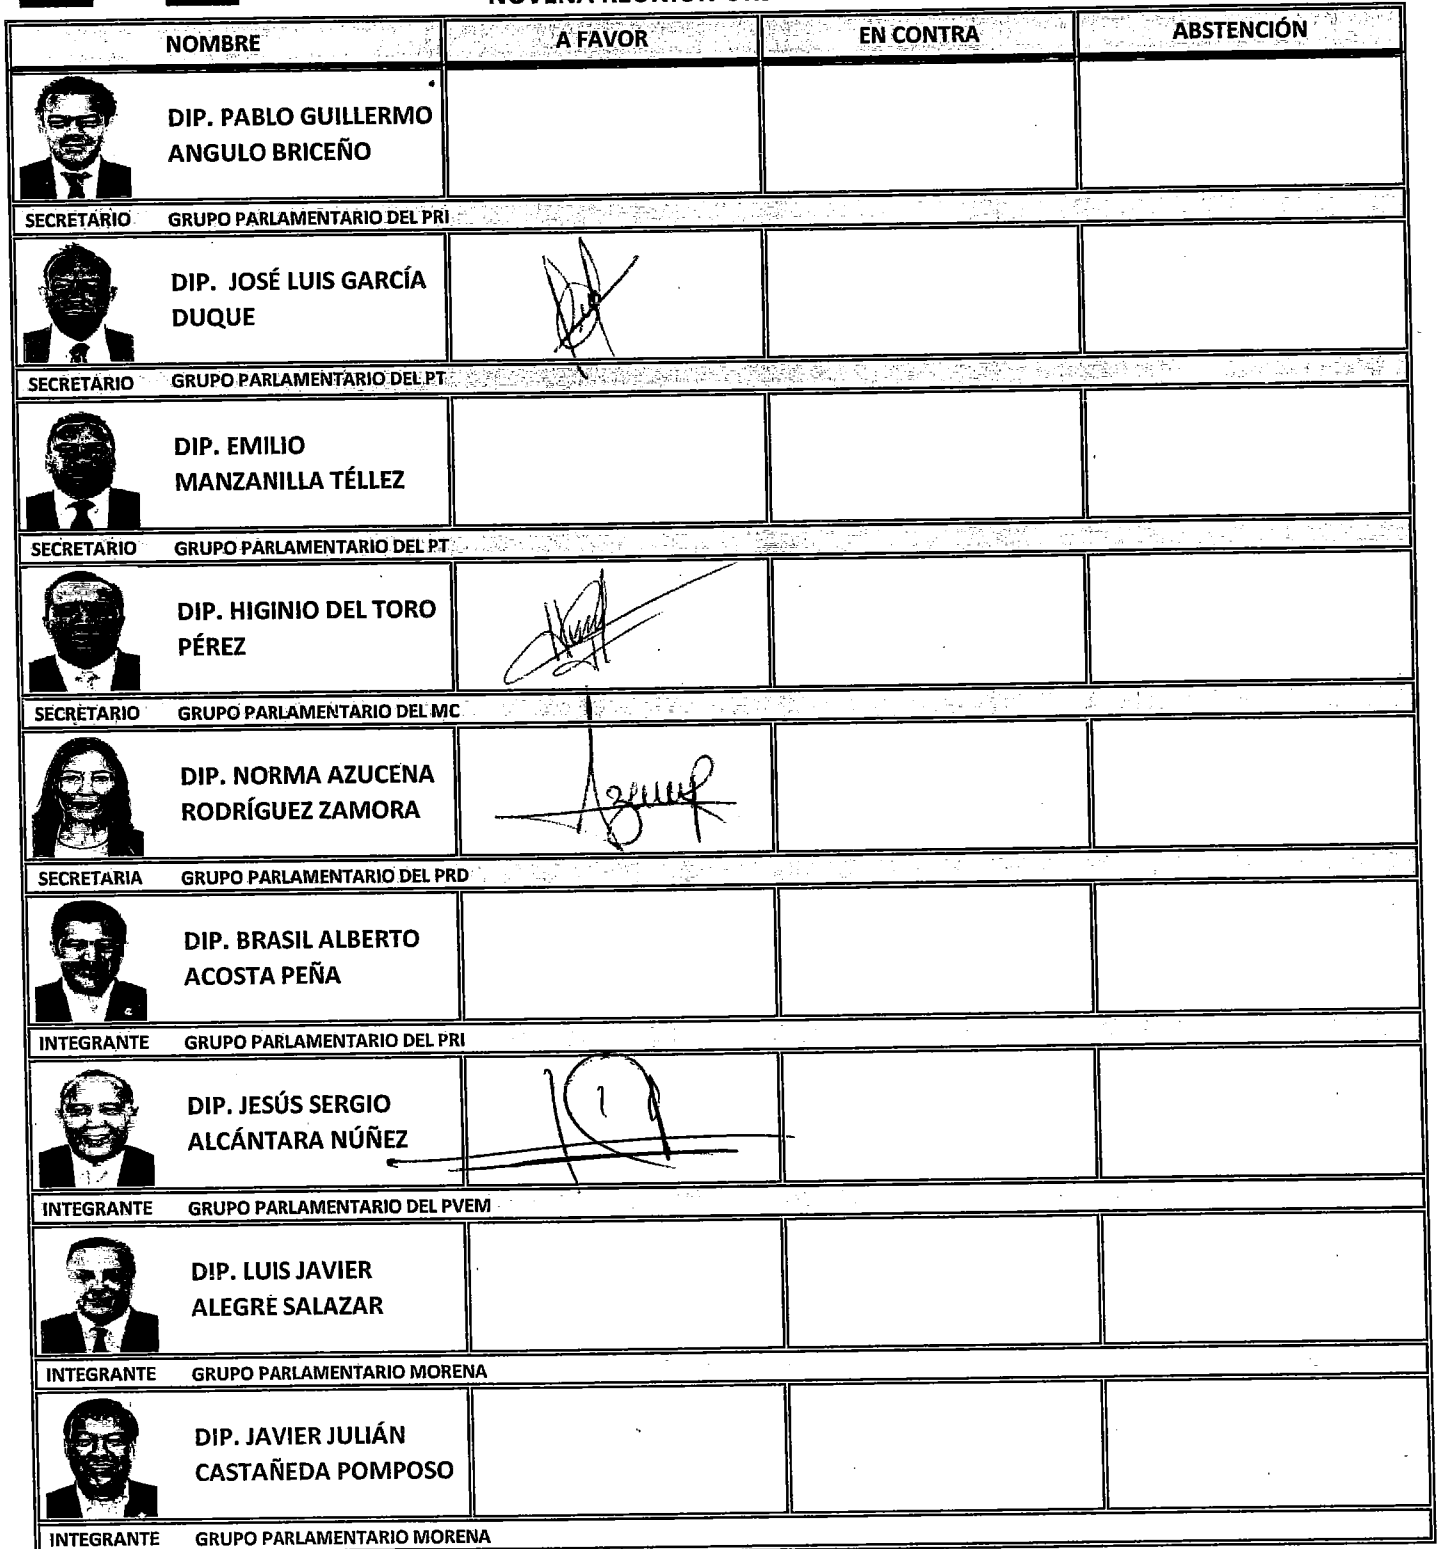 NOVENA REUNIÓN
NOMBRE A FAVOR EN CONTRA ABSTENCIÓN
DIP. PABLO GUILLERMO
ANGULO BRICEÑO
SECRETARIO GRUPO PARLAMENTARIO DEL PRI
DIP. JOSÉ LUIS GARCÍA
DUQUE
SECRETARIO GRUPO PARLAMENTARIO DEL PT
DIP. EMILIO
MANZANILLA TÉLLEZ
SECRETARIO GRUPO PARLAMENTARIO DEL PT
DIP. HIGINIO DEL TORO
PÉREZ
SECRETARIO GRUPO PARLAMENTARIO DEL MC
DIP. NORMA AZUCENA
RODRÍGUEZ ZAMORA
SECRETARIA GRUPO PARLAMENTARIO DEL PRD
DIP. BRASIL ALBERTO
ACOSTA PEÑA
INTEGRANTE GRUPO PARLAMENTARIO DEL PRI
DIP. JESÚS SERGIO
ALCÁNTARA NÚÑEZ
INTEGRANTE GRUPO PARLAMENTARIO DEL PVEM
DIP. LUIS JAVIER
ALEGRE SALAZAR
INTEGRANTE GRUPO PARLAMENTARIO MORENA
DIP. JAVIER JULIÁN
CASTAÑEDA POMPOSO
INTEGRANTE GRUPO PARLAMENTARIO MORENA